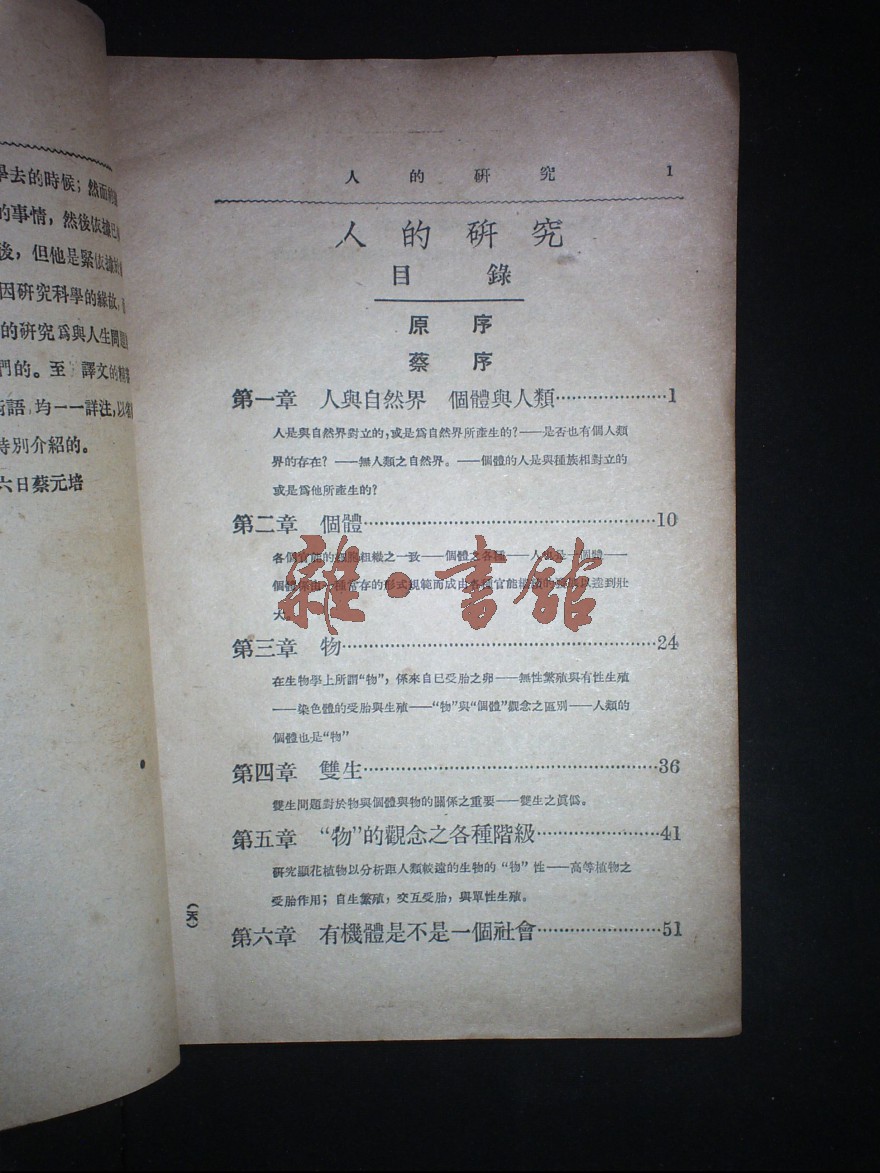 學去的時候；然而
的事情，然後依據已
後，但他是緊依據
因研究科學的緣故，
的研究爲與人生問題
們的。至 譯文的
術語，均一一詳注，以
特別介紹的。
六日蔡元培
人的硏究 1
人的硏究
目錄
原序
蔡序
第一章 人與自然界 個體與人類…………………1
人是與自然界對立的，或是爲自然界所產生的？——是否也有個人類
界的存在？——無人類之自然界。——個體的人是與種族相對立的
或是爲他所產生的？
第二章 個體…………………10
各個官能的 組織之一致——個體之各種——人 是一個體——
個體係由 種常存的形式規範而成由 種官能 以達到壯
大
第三章 物…………………24
在生物學上所謂“物”，係來自已受胎之卵——無性繁殖與有性生殖
——染色體的受胎與生殖——“物”與“個體”觀念之區別——人類的
個體也是“物”
第四章 雙生…………………36
雙生問題對於物與個體與物的關係之重要——雙生之眞僞。
第五章 “物”的觀念之各種階級…………………41
硏究顯花植物以分析距人類較遠的生物的“物”性——高等植物之
受胎作用；自生繁殖，交互受胎，與單性生殖。
第六章 有機體是不是一個社會…………………51
（天）
雜·書館